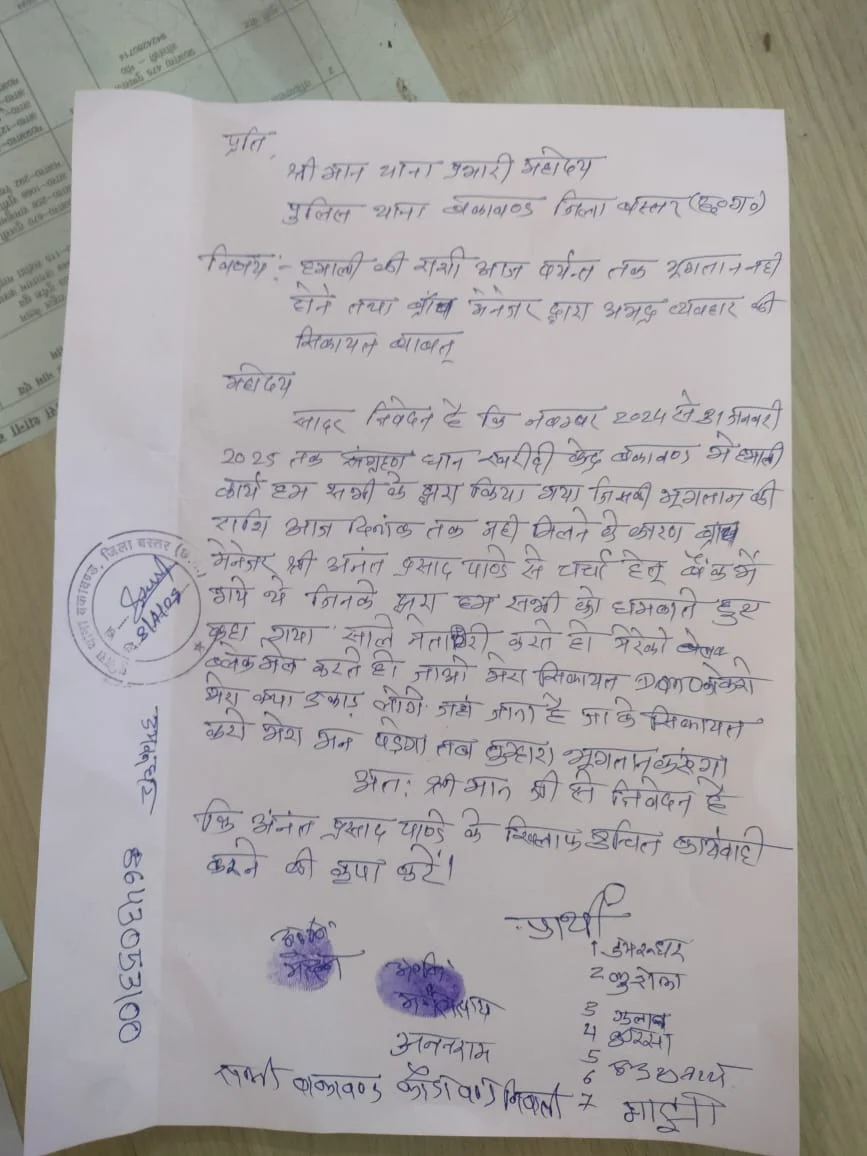 प्रति,
श्री मान थाना प्रभारी महोदय
पुलिस थाना बकावण्ड जिला बस्तर (छ०ग०)
विषय :- हमाली की राशी आज पर्यन्त तक भूगतान नही
होने तथा ब्रांच मेनेजर द्वारा अभद्र व्यवहार की
सिकायत बाबत्
महोदय
सादर निवेदन है कि नवम्बर 2024 से 31 जनवरी
2025 तक संग्रहण धान खरीदी केंद्र बकावण्ड में हमाली
कार्य हम सभी के द्वारा किया गया जिसकी भूगतान की
राशि आज दिनांक तक नही मिलने के कारण ब्रांच
मेनेजर श्री अनंत प्रसाद पाण्डे से चर्चा हेतू बैंक में
गये थे जिनके द्वारा हम सभी को धमकाते हुए
कहा गया साले नेतागिरी करते हो मेरेको
ब्लेकमेल करते हो जाओ मेरा सिकायत करो
मेरा क्या उखाड़ लोगे जहां जाना है जा के सिकायत
करो मेरा मन पड़ेगा तब तुम्हारा भूगतान करूंगा
अतः श्री मान जी से निवेदन है
कि अनंत प्रसाद पाण्डे के खिलाफ उचित कार्यवाही
करने की कृपा करें।
प्रार्थी
1 डमरूधर
2
3 गुलाब
4
5
6
7 माझी
अनतराम
बाकावण्ड
थाना बकावण्ड, जिला बस्तर
8643053100